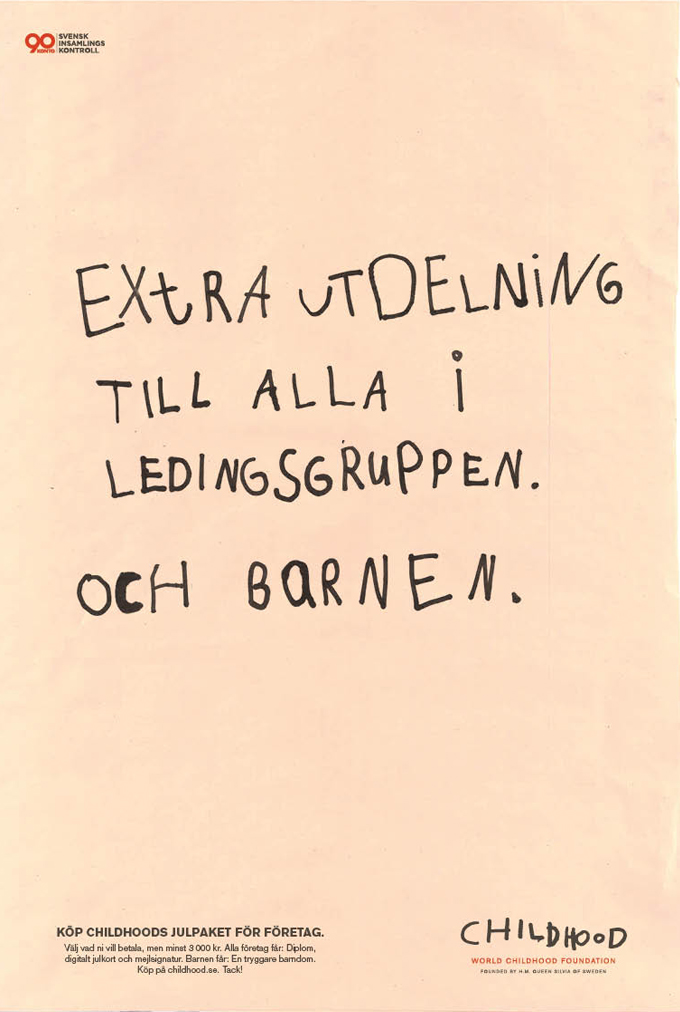 90 KONTO
SVENSK
INSAMLINGS
KONTROLL
EXtRA UTDELNiNG
TILL ALLA i
LEDINGSGRuPPEN.
OCH BaRNEN.
KÖP CHILDHOODS JULPAKET FÖR FÖRETAG.
Välj vad ni vill betala, men minst 3 000 kr. Alla företag får: Diplom,
digitalt julkort och mejlsignatur. Barnen får: En tryggare barndom.
Köp på childhood.se. Tack!
CHILDHOOD
WORLD CHILDHOOD FOUNDATION
FOUNDED BY H.M. QUEEN SILVIA OF SWEDEN